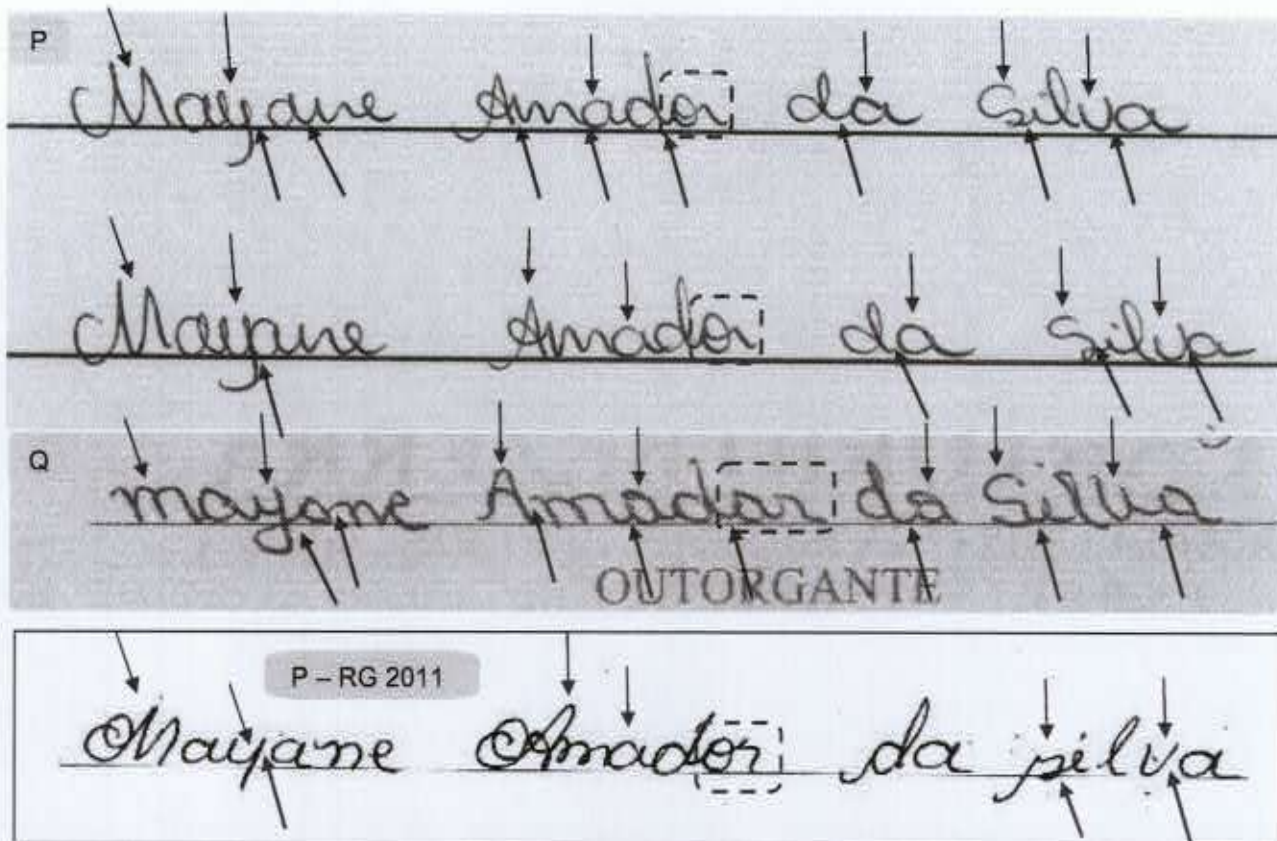 P
Mayane Amador da Silva
Mayane Amador da Silva
Q
mayane Amador da Silva
OUTORGANTE
P – RG 2011
Mayane Amador da silva